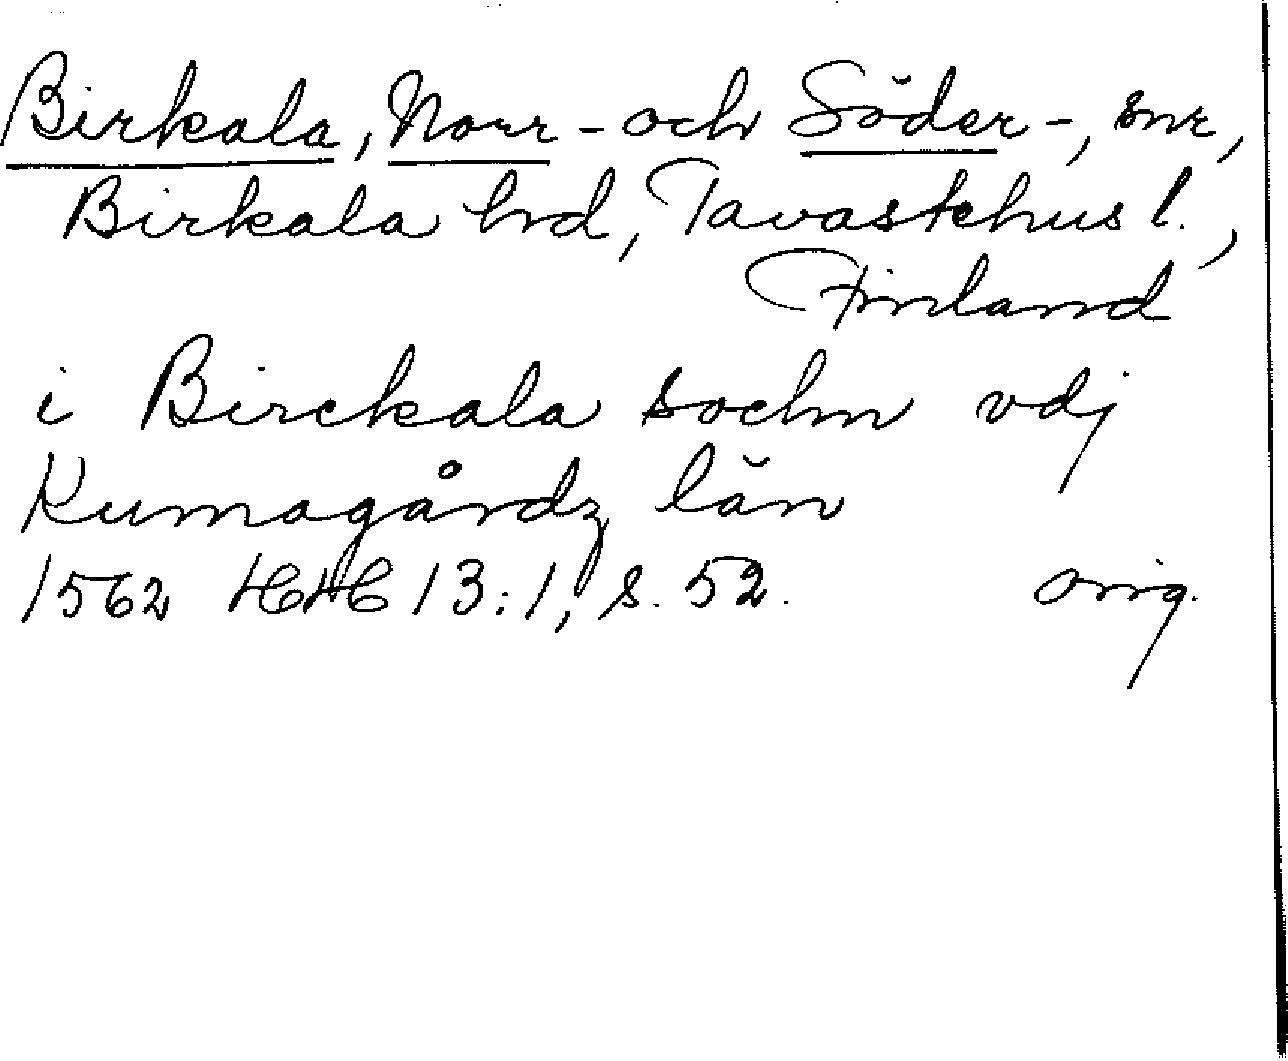 Birkala, Norr- och Söder-, snr,
Birkala hrd, Tavastehus l.,
Finland
i Birckala sochn vdj
Kumagårdz län
1562 HH 13:1, s. 52. orig.